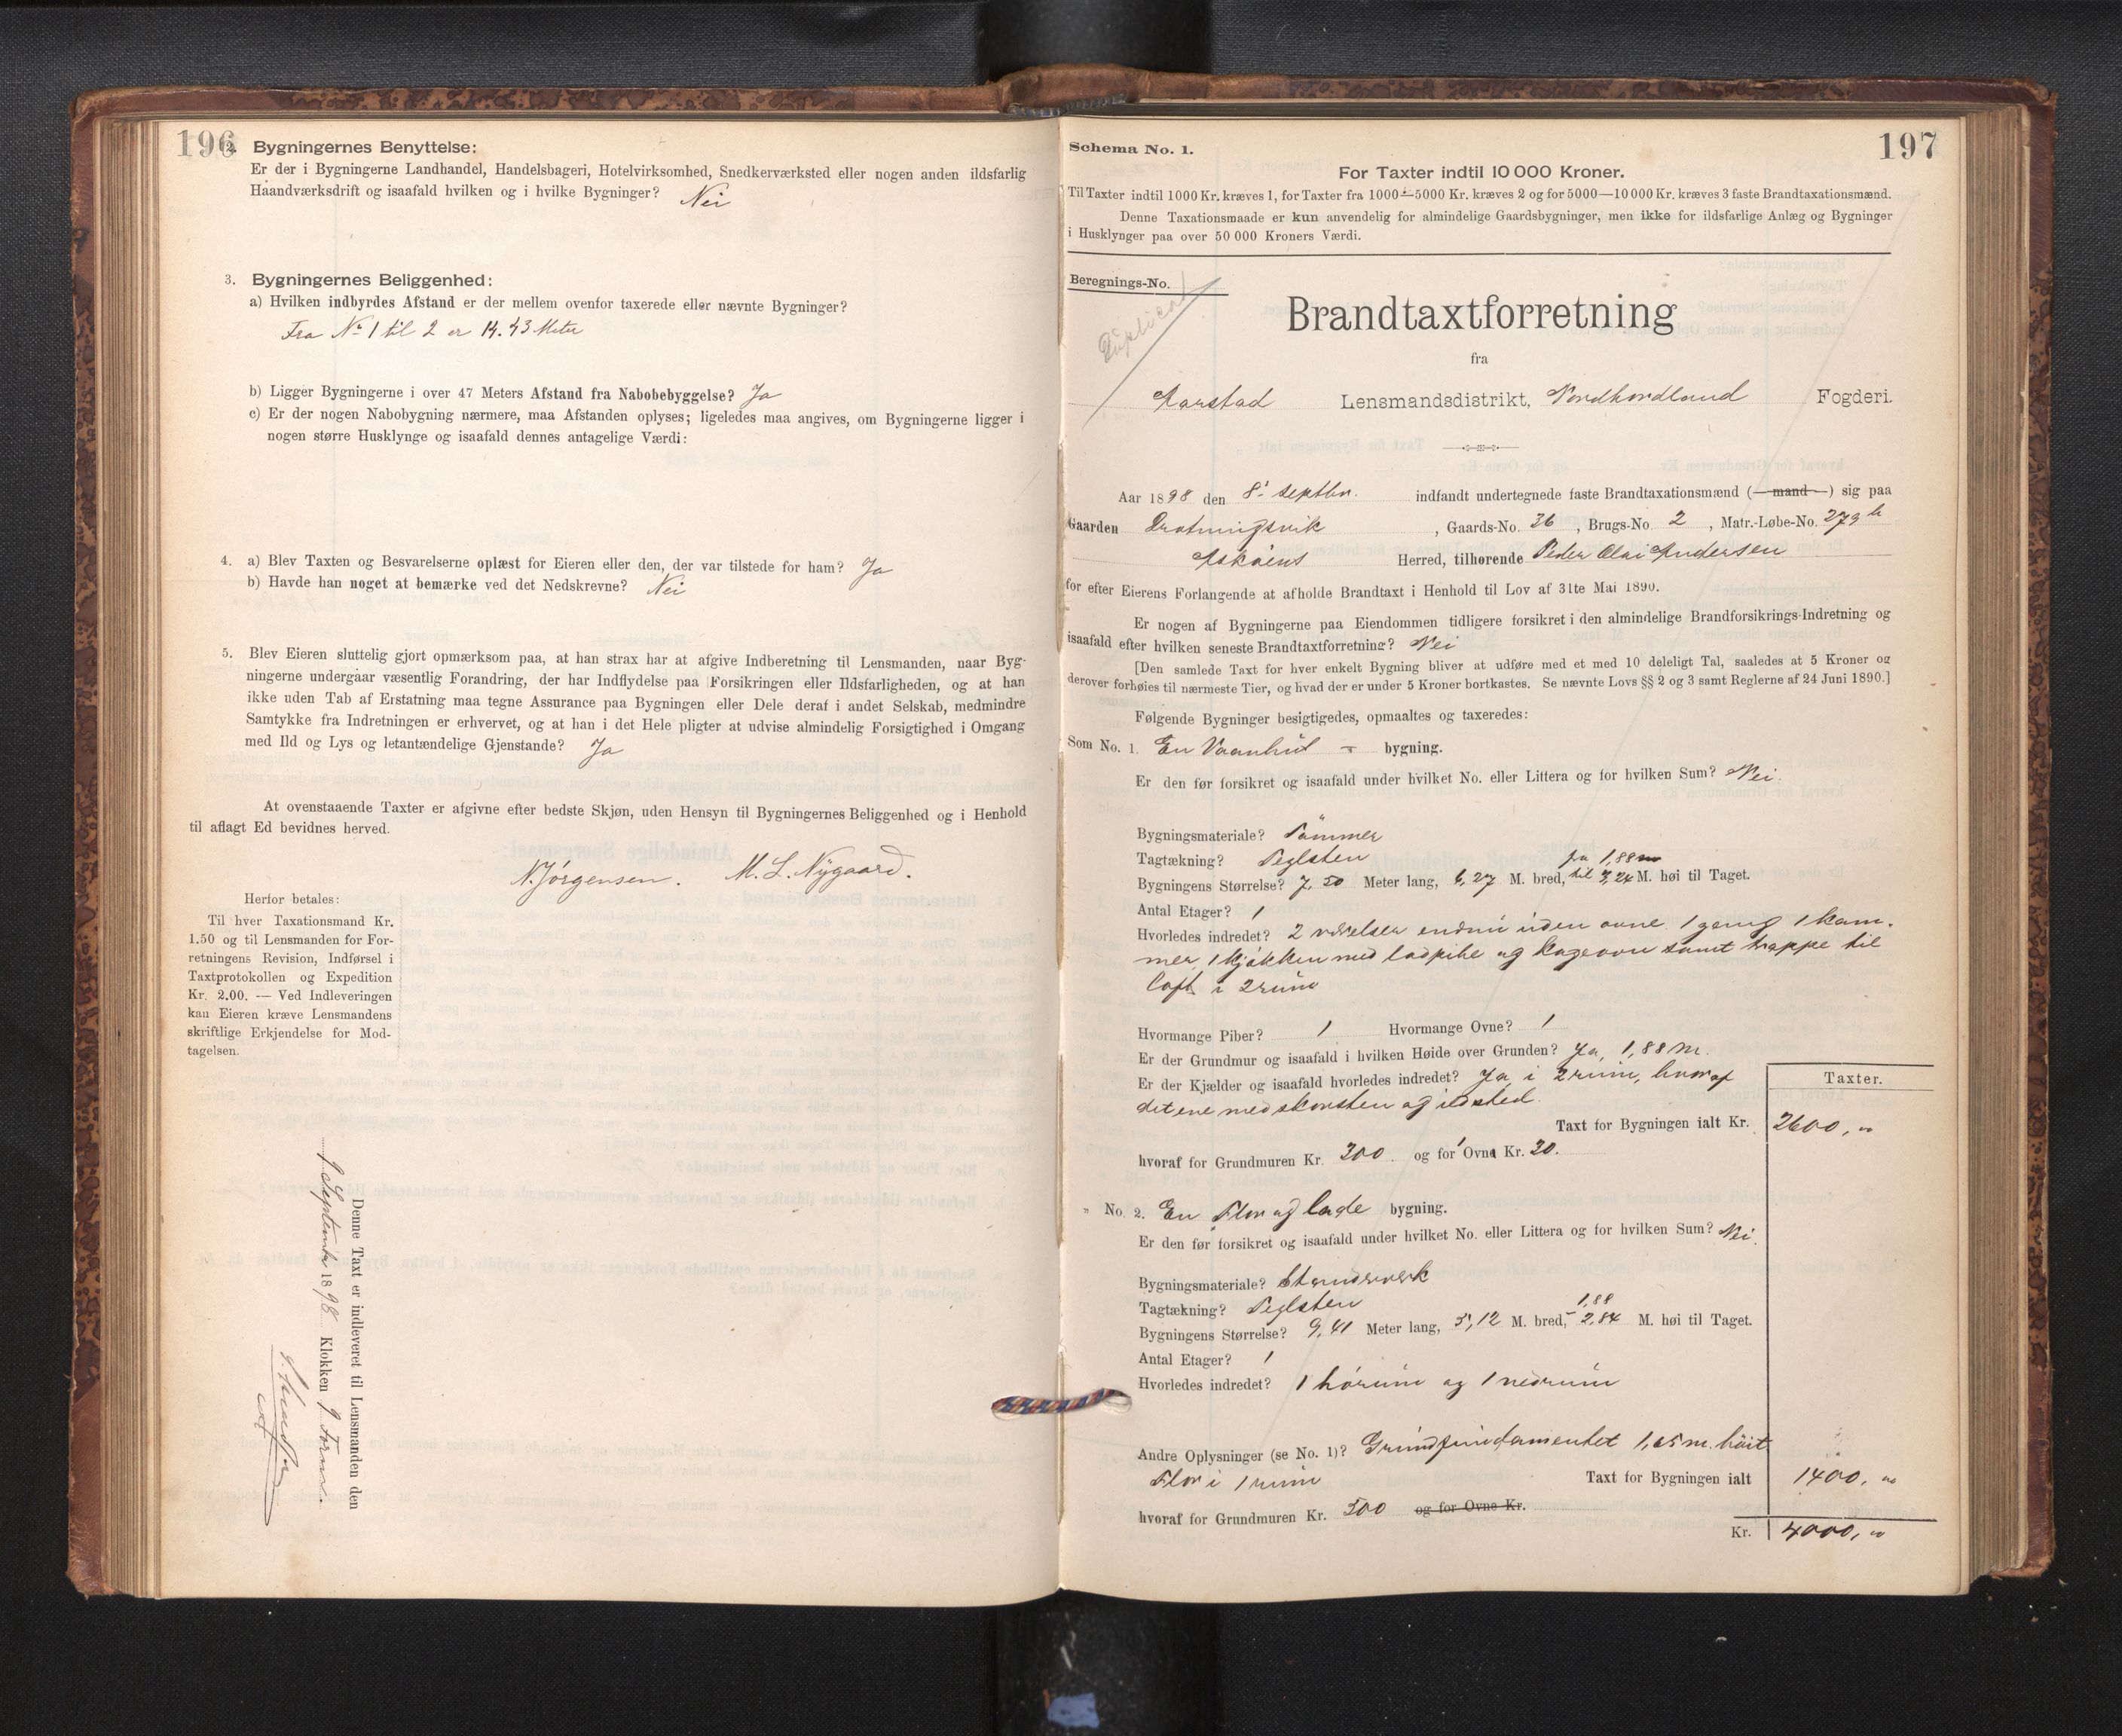 196
2. Bygningernes Benyttelse:
Er der i Bygningerne Landhandel, Handelsbageri, Hotelvirksomhed, Snedkerværksted eller nogen anden ildsfarlig
Haandværksdrift og isaafald hvilken og i hvilke Bygninger? Nei
3. Bygningernes Beliggenhed:
a) Hvilken indbyrdes Afstand er der mellem ovenfor taxerede eller nævnte Bygninger?
Fra No 1 til 2 er 14.43 Meter
b) Ligger Bygningerne i over 47 Meters Afstand fra Nabobebyggelse? Ja
c) Er der nogen Nabobygning nærmere, maa Afstanden oplyses; ligeledes maa angives, om Bygningerne ligger i
nogen større Husklynge og isaafald dennes antagelige Værdi:
4. a) Blev Taxten og Besvarelserne oplæst for Eieren eller den, der var tilstede for ham? Ja
b) Havde han noget at bemærke ved det Nedskrevne? Nei
5. Blev Eieren sluttelig gjort opmærksom paa, at han strax har at afgive Indberetning til Lensmanden, naar Byg-
ningerne undergaar væsentlig Forandring, der har Indflydelse paa Forsikringen eller Ildsfarligheden, og at han
ikke uden Tab af Erstatning maa tegne Assurance paa Bygningen eller Dele deraf i andet Selskab, medmindre
Samtykke fra Indretningen er erhvervet, og at han i det Hele pligter at udvise almindelig Forsigtighed i Omgang
med Ild og Lys og letantændelige Gjenstande? Ja
At ovenstaaende Taxter er afgivne efter bedste Skjøn, uden Hensyn til Bygningernes Beliggenhed og i Henhold
til aflagt Ed bevidnes herved.
N. Jørgensen. M. L. Nygaard.
Herfor betales:
Til hver Taxationsmand Kr.
1.50 og til Lensmanden for For-
retningens Revision, Indførsel i
Taxtprotokollen og Expedition
Kr. 2.00. — Ved Indleveringen
kan Eieren kræve Lensmandens
skriftlige Erkjendelse for Mod-
tagelsen.
Denne Taxt er indleveret til Lensmanden den
9 September 1898 Klokken 9 Form.
197
Schema No. 1.
For Taxter indtil 10 000 Kroner.
Til Taxter indtil 1000 Kr. kræves 1, for Taxter fra 1000—5000 Kr. kræves 2 og for 5000—10 000 Kr. kræves 3 faste Brandtaxationsmænd.
Denne Taxationsmaade er kun anvendelig for almindelige Gaardsbygninger, men ikke for ildsfarlige Anlæg og Bygninger
i Husklynger paa over 50 000 Kroners Værdi.
Beregnings-No.
Duplicat
Brandtaxtforretning
fra
Aarstad Lensmandsdistrikt, Nordhordland Fogderi.
Aar 1898 den 8' septbr. indfandt undertegnede faste Brandtaxationsmænd (mand) sig paa
Gaarden Drotningsvik, Gaards-No. 36, Brugs-No. 2, Matr.-Løbe-No. 279 b
Askøens Herred, tilhørende Peder Olai Andersen
for efter Eierens Forlangende at afholde Brandtaxt i Henhold til Lov af 31te Mai 1890.
Er nogen af Bygningerne paa Eiendommen tidligere forsikret i den almindelige Brandforsikrings-Indretning og
isaafald efter hvilken seneste Brandtaxtforretning? Nei
[Den samlede Taxt for hver enkelt Bygning bliver at udføre med et med 10 deleligt Tal, saaledes at 5 Kroner og
derover forhøies til nærmeste Tier, og hvad der er under 5 Kroner bortkastes. Se nævnte Lovs §§ 2 og 3 samt Reglerne af 24 Juni 1890.]
Følgende Bygninger besigtigedes, opmaaltes og taxeredes:
Som No. 1. En Vaanhus - bygning.
Er den før forsikret og isaafald under hvilket No. eller Littera og for hvilken Sum? Nei.
Bygningsmateriale? Tømmer
Tagtækning? Teglsten
fra 1,88 m
Bygningens Størrelse? 7,50 Meter lang, 6,27 M. bred, til 3,24 M. høi til Taget.
Antal Etager? 1
Hvorledes indredet? 2 værelser endnu uden ovne 1 gang 1 kam-
mer, 1 kjøkken med ladpibe og kageovn samt trappe til
loft i 2 rum
Hvormange Piber? 1 Hvormange Ovne? 1
Er der Grundmur og isaafald i hvilken Høide over Grunden? Ja, 1,88 M.
Er der Kjælder og isaafald hvorledes indredet? Ja i 2 rum, hvoraf
det ene med skorsten og ildsted.
Taxter.
Taxt for Bygningen ialt Kr. 2600, "
hvoraf for Grundmuren Kr. 300. og for 1 Ovne Kr. 30.
" No. 2. En Flor og lade bygning.
Er den før forsikret og isaafald under hvilket No. eller Littera og for hvilken Sum? Nei.
Bygningsmateriale? Stenderverk
Tagtækning? Teglsten
1,88
Bygningens Størrelse? 9,41 Meter lang, 5,12 M. bred, - 2,84 M. høi til Taget.
Antal Etager? 1
Hvorledes indredet? 1 hørum og 1 nedrum
Andre Oplysninger (se No. 1)? Grundfundamentet 1,65 m. høit
Flor i 1 rum Taxt for Bygningen ialt 1400, "
hvoraf for Grundmuren Kr. 500 og for Ovne Kr.
Kr. 4000, "